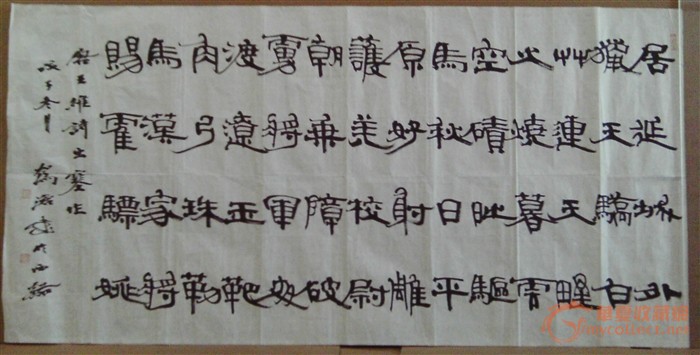 居延城外
獵天驕白
艸連天野
火燒暮雲
空磧時驅
馬秋日平
原好射雕
護羌校尉
朝乘障破
虜將軍夜
渡遼玉靶
角弓珠勒
馬漢家將
賜霍驃姚
唐王維詩出塞作
戊子冬月
於西